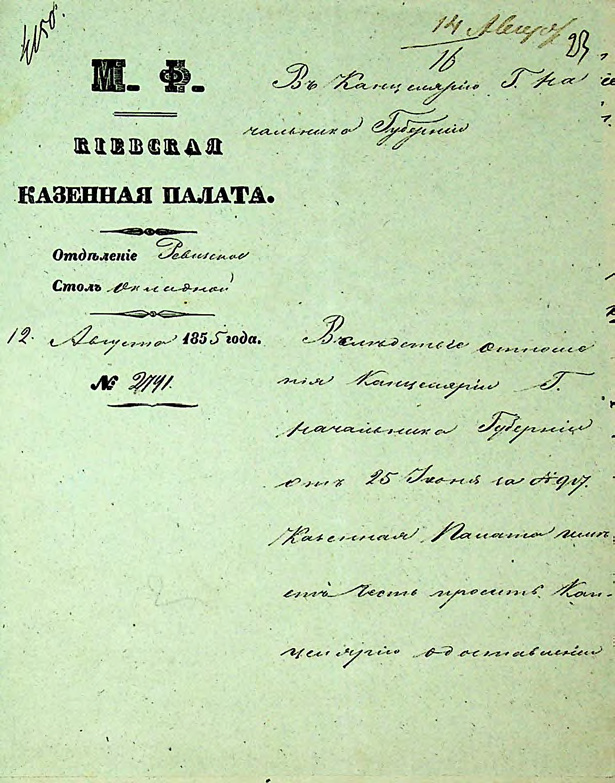 14 Август
16
23
М. Ф.
КІЕВСКАЯ
КАЗЕННАЯ ПАЛАТА.
Отдѣленіе Ревизское
Столъ окладной
12. Августа 1855 года.
№ 2791.
Въ Канцелярію Г. На
чальника Губерніи
Вслѣдствіе отноше
нія Канцеляріи Г.
Начальника Губерніи
отъ 25 Іюня за №
Казенная Палата имѣ
етъ честь просить Кан-
целярію о доставленіи